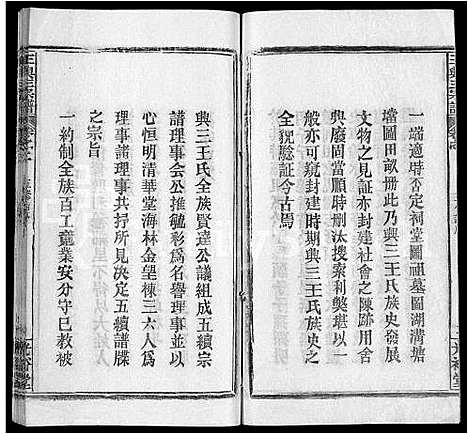 一端適時否定祠堂圖祖墓圖湖溝塘
壋圖田畝冊此乃興三王氏族史發展
文物之見証亦封建社會之陳跡用舍
與廢同當順時刪汰搜索利獘堪以一
般亦可窺封建時期興三王氏族史之
全貌驗証今古焉
興三王氏全族賢達公議組成五續宗
譜理事会公推毓彩為名譽理事並以
心恒明清華堂海林金望棟三六人爲
理事諸理事共抒所見决定五續譜牒
之宗旨
一約制全族百工藝業安分守已教被
王興三宗譜